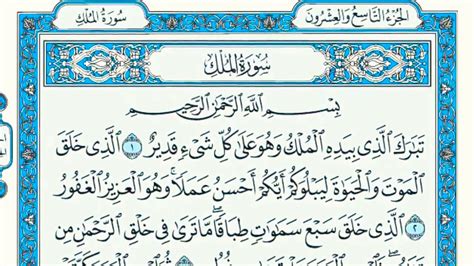 الجُزْءُ التَّاسِعُ وَالعِشْرُونَ
سُورَةُ المُلْكِ
سُورَةُ المُلْكِ
بِسْمِ ٱللَّهِ ٱلرَّحْمَٰنِ ٱلرَّحِيمِ
تَبَٰرَكَ ٱلَّذِي بِيَدِهِ ٱلْمُلْكُ وَهُوَ عَلَىٰ كُلِّ شَيْءٍ قَدِيرٌ ١ ٱلَّذِي خَلَقَ
ٱلْمَوْتَ وَٱلْحَيَوٰةَ لِيَبْلُوَكُمْ أَيُّكُمْ أَحْسَنُ عَمَلًا ۚ وَهُوَ ٱلْعَزِيزُ ٱلْغَفُورُ
٢ ٱلَّذِي خَلَقَ سَبْعَ سَمَٰوَٰتٍ طِبَاقًا ۖ مَّا تَرَىٰ فِي خَلْقِ ٱلرَّحْمَٰنِ مِن